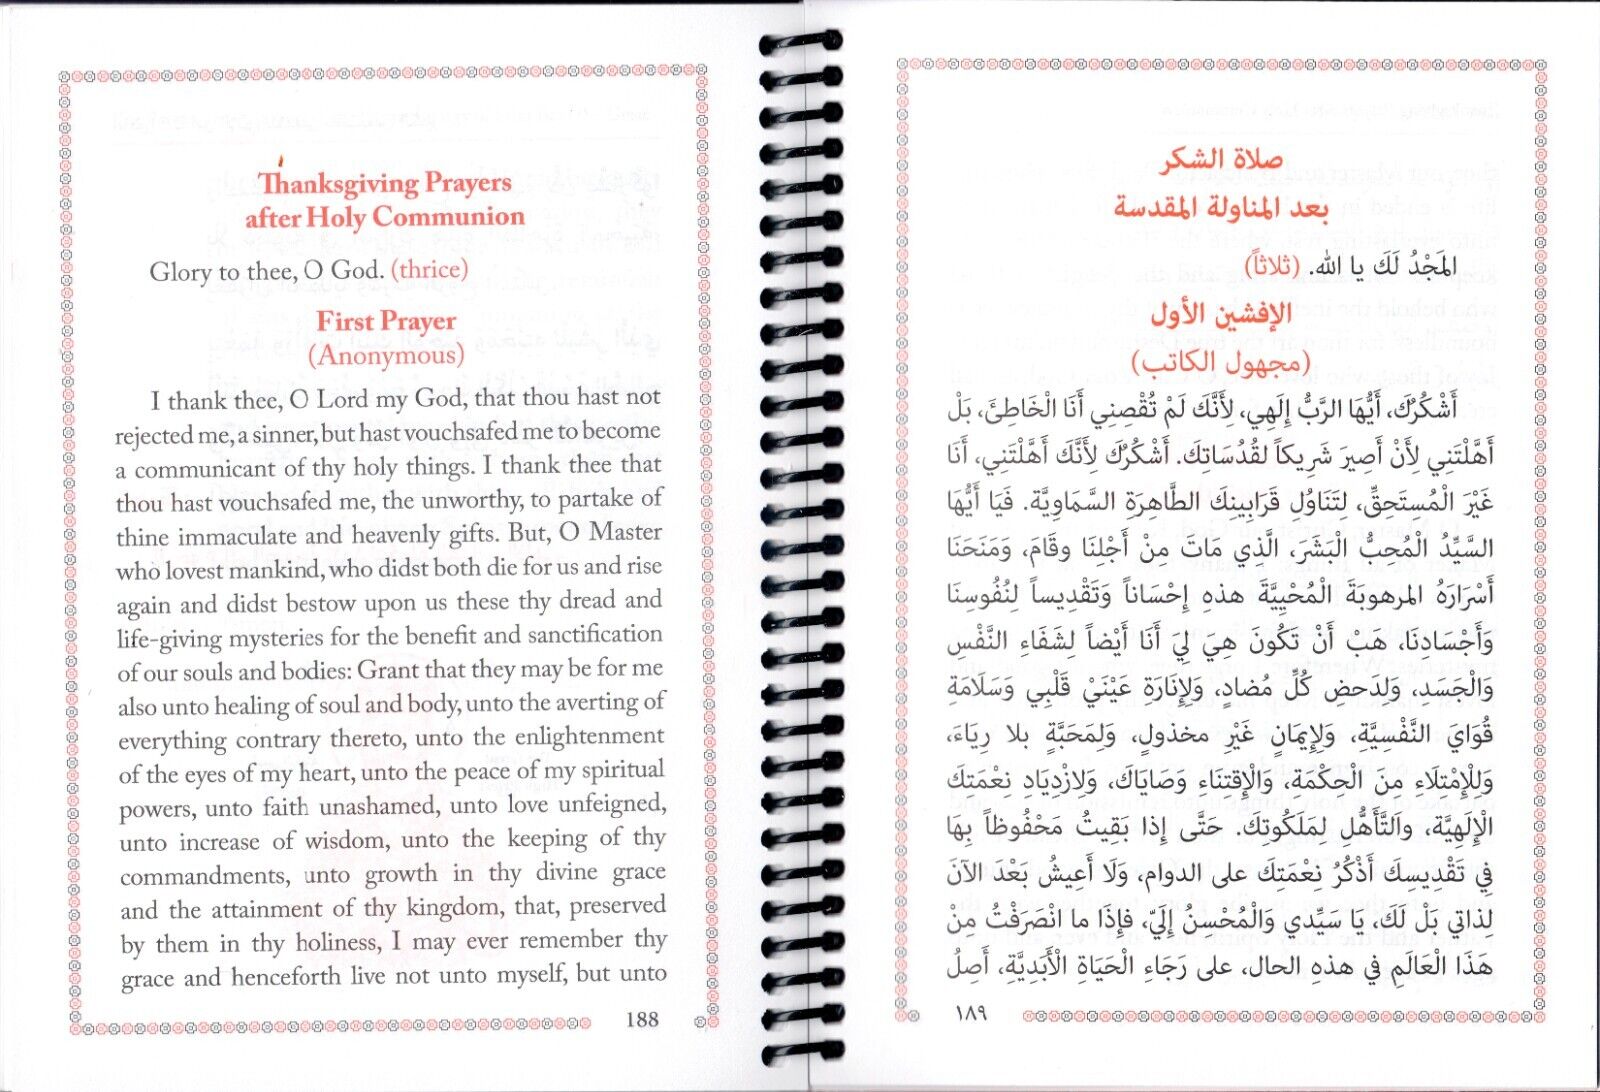 Thanksgiving Prayers
after Holy Communion
Glory to thee, O God. (thrice)
First Prayer
(Anonymous)
I thank thee, O Lord my God, that thou hast not
rejected me, a sinner, but hast vouchsafed me to become
a communicant of thy holy things. I thank thee that
thou hast vouchsafed me, the unworthy, to partake of
thine immaculate and heavenly gifts. But, O Master
who lovest mankind, who didst both die for us and rise
again and didst bestow upon us these thy dread and
life-giving mysteries for the benefit and sanctification
of our souls and bodies: Grant that they may be for me
also unto healing of soul and body, unto the averting of
everything contrary thereto, unto the enlightenment
of the eyes of my heart, unto the peace of my spiritual
powers, unto faith unashamed, unto love unfeigned,
unto increase of wisdom, unto the keeping of thy
commandments, unto growth in thy divine grace
and the attainment of thy kingdom, that, preserved
by them in thy holiness, I may ever remember thy
grace and henceforth live not unto myself, but unto
188
صلاة الشكر
بعد المناولة المقدسة
المَجْدُ لَكَ يا الله. (ثلاثاً)
الإفشين الأول
(مجهول الكاتب)
أَشْكُرُكَ، أَيُّهَا الرَّبُّ إِلَهِي، لِأَنَّكَ لَمْ تُقْصِنِي أَنَا الْخَاطِئَ، بَلْ
أَهَّلْتَنِي لِأَنْ أَصِيرَ شَرِيكاً لقُدُسَاتِكَ. أَشْكُرُكَ لأَنَّكَ أَهَّلْتَنِي، أَنَا
غَيْرَ الْمُستَحِقِّ، لِتَنَاوُلِ قَرَابِينِكَ الطَّاهِرَةِ السَّمَاوِيَّة. فَيَا أَيُّهَا
السَّيِّدُ الْمُحِبُّ الْبَشَرَ، الَّذِي مَاتَ مِنْ أَجْلِنَا وقَامَ، وَمَنَحَنَا
أَسْرَارَهُ المرهوبَةَ الْمُحْيِيَّةَ هذهِ إِحْسَاناً وَتَقْدِيساً لِنُفُوسِنَا
وَأَجْسَادِنَا، هَبْ أَنْ تَكُونَ هِيَ لِيَ أَنَا أَيْضاً لِشَفَاءِ النَّفْسِ
وَالْجَسَدِ، وَلدَحضِ كُلِّ مُضادٍ، وَلِإِنَارَةِ عَيْنَيْ قَلْبِي وَسَلَامَةِ
قُوَايَ النَّفْسِيَّةِ، وَلِإِيمَانٍ غَيْرِ مخذولٍ، وَلِمَحَبَّةٍ بلا رِيَاءَ،
وَلِلْإِمْتِلَاءِ مِنَ الْحِكْمَةِ، وَالْإِقتِنَاءِ وَصَايَاكَ، وَلازْدِيَادِ نِعْمَتِكَ
الْإِلَهِيَّة، واَلتَّأَهُّلِ لِمَلَكُوتِكَ. حَتَّى إِذا بَقِيتُ مَحْفُوظاً بِهَا
فِي تَقْدِيسِكَ أَذْكُرُ نِعْمَتِكَ على الدوام، وَلَا أَعِيشُ بَعْدَ الآنَ
لِذاتِي بَلْ لَكَ، يَا سَيِّدِي وَالْمُحْسِنُ إِلَيّ، فإِذَا ما انْصَرَفْتُ مِنْ
هَذَا الْعَالَمِ في هذهِ الحال، على رَجَاءِ الْحَيَاةِ الْأَبَدِيَّةِ، أَصِلُ
١٨٩